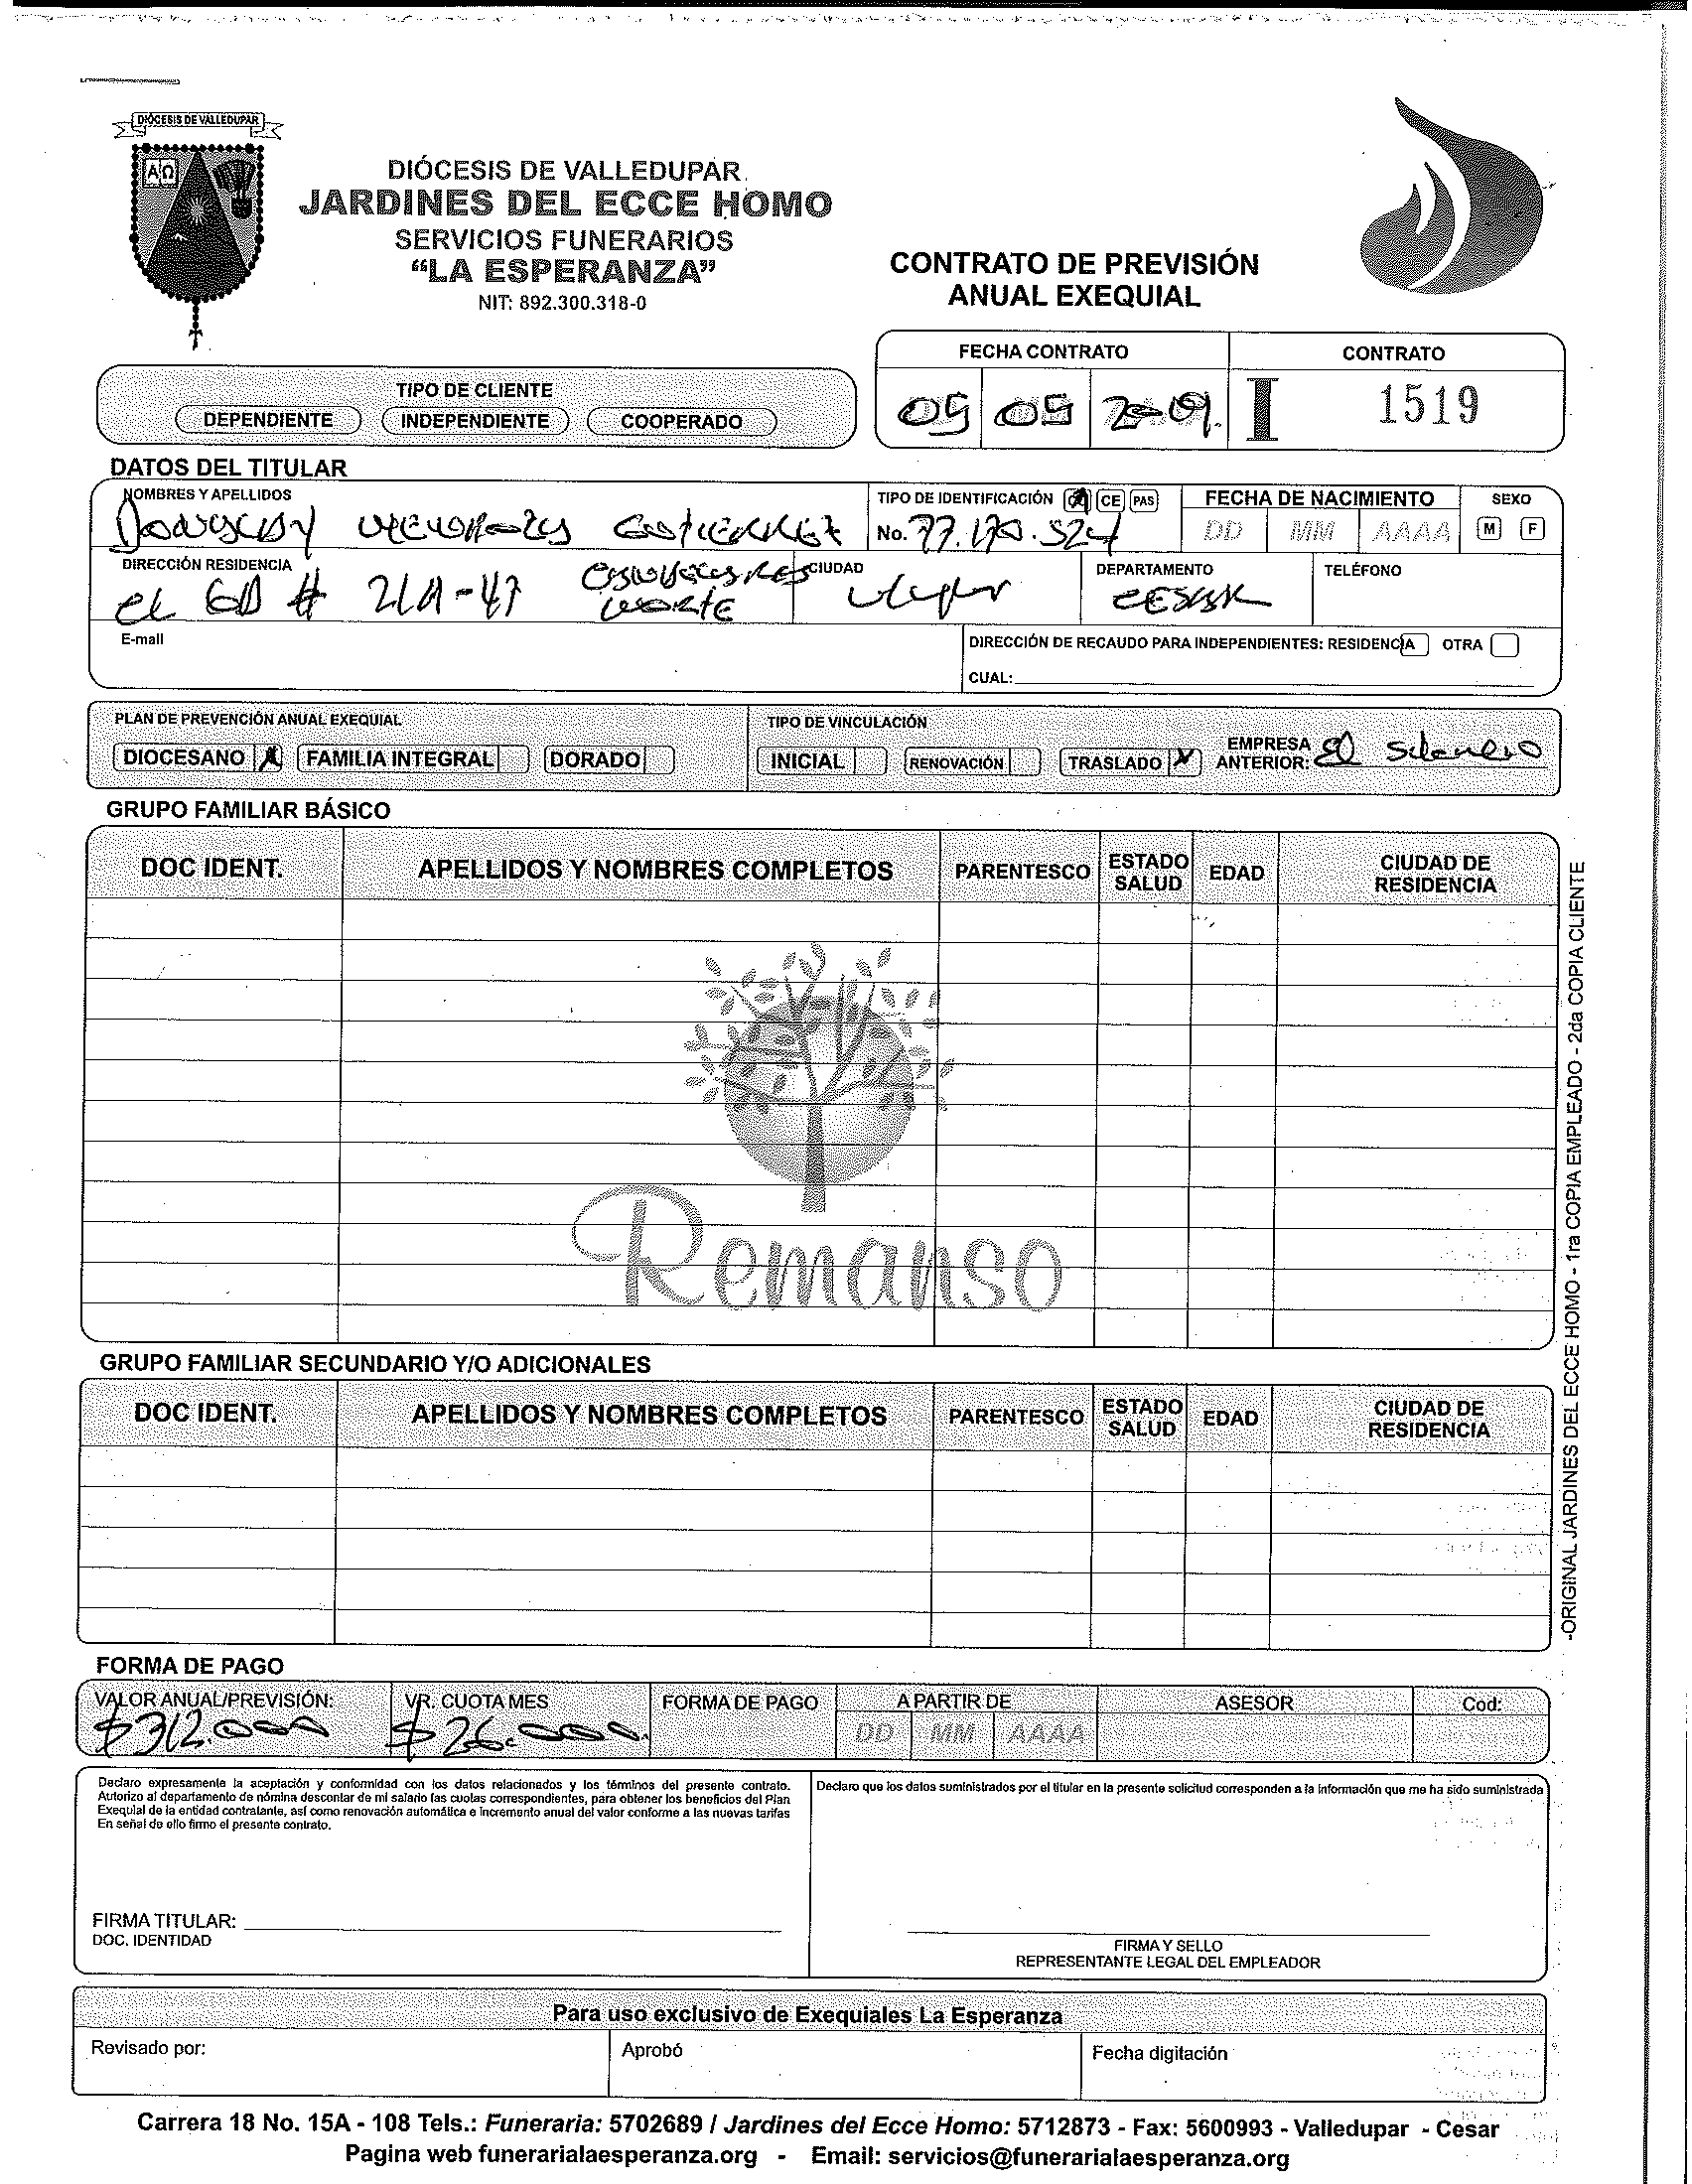 DIÓCESIS DE VALLEDUPAR
DIÓCESIS DE VALLEDUPAR
JARDINES DEL ECCE HOMO
SERVICIOS FUNERARIOS
“LA ESPERANZA”
NIT: 892.300.318-0
CONTRATO DE PREVISIÓN
ANUAL EXEQUIAL
FECHA CONTRATO CONTRATO
05 05 2009. I 1519
TIPO DE CLIENTE
DEPENDIENTE INDEPENDIENTE COOPERADO
DATOS DEL TITULAR
NOMBRES Y APELLIDOS TIPO DE IDENTIFICACIÓN CE PAS FECHA DE NACIMIENTO SEXO
No. 77.170.524 DD MM AAAA M F
DIRECCIÓN RESIDENCIA CIUDAD DEPARTAMENTO TELÉFONO
# 21A-47 NORTE CESAR
E-mail DIRECCIÓN DE RECAUDO PARA INDEPENDIENTES: RESIDENCIA OTRA
CUAL:
PLAN DE PREVENCIÓN ANUAL EXEQUIAL TIPO DE VINCULACIÓN
DIOCESANO X FAMILIA INTEGRAL DORADO INICIAL RENOVACIÓN TRASLADO X EMPRESA ANTERIOR: El
GRUPO FAMILIAR BÁSICO
DOC IDENT. APELLIDOS Y NOMBRES COMPLETOS PARENTESCO ESTADO SALUD EDAD CIUDAD DE RESIDENCIA
Remanso
GRUPO FAMILIAR SECUNDARIO Y/O ADICIONALES
DOC IDENT. APELLIDOS Y NOMBRES COMPLETOS PARENTESCO ESTADO SALUD EDAD CIUDAD DE RESIDENCIA
-ORIGINAL JARDINES DEL ECCE HOMO - 1ra COPIA EMPLEADO - 2da COPIA CLIENTE
FORMA DE PAGO
VALOR ANUAL/PREVISIÓN: VR. CUOTA MES FORMA DE PAGO A PARTIR DE ASESOR Cod:
$312.000 $26.000. DD MM AAAA
Declaro expresamente la aceptación y conformidad con los datos relacionados y los términos del presente contrato.
Autorizo al departamento de nómina descontar de mi salario las cuotas correspondientes, para obtener los beneficios del Plan
Exequial de la entidad contratante, así como renovación automática e incremento anual del valor conforme a las nuevas tarifas
En señal de ello firmo el presente contrato.
Declaro que los datos suministrados por el titular en la presente solicitud corresponden a la información que me ha sido suministrada
FIRMA TITULAR:
DOC. IDENTIDAD
FIRMA Y SELLO
REPRESENTANTE LEGAL DEL EMPLEADOR
Para uso exclusivo de Exequiales La Esperanza
Revisado por: Aprobó Fecha digitación
Carrera 18 No. 15A - 108 Tels.: Funeraria: 5702689 / Jardines del Ecce Homo: 5712873 - Fax: 5600993 - Valledupar - Cesar
Pagina web funerarialaesperanza.org - Email: servicios@funerarialaesperanza.org